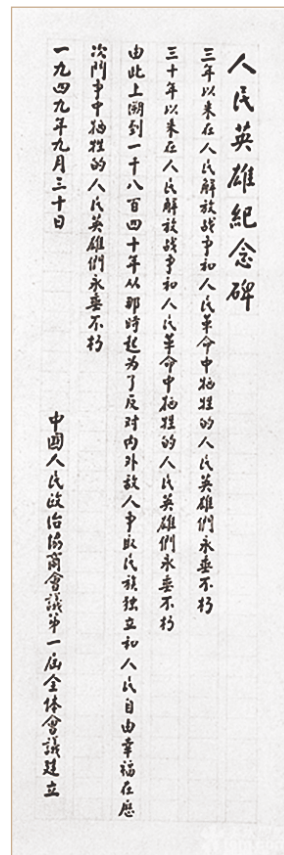 人民英雄紀念碑
三年以来在人民解放战争和人民革命中牺牲的人民英雄們永垂不朽
三十年以来在人民解放战争和人民革命中牺牲的人民英雄們永垂不朽
由此上溯到一千八百四十年从那時起为了反对内外敌人争取民族独立和人民自由幸福在历
次鬥争中牺牲的人民英雄們永垂不朽
一九四九年九月三十日
中國人民政治協商會議第一屆全体會議建立